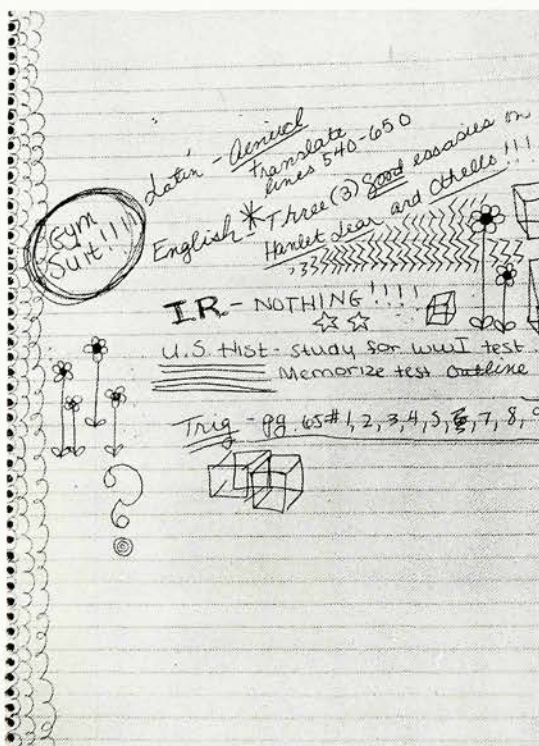 Latin - Aeneid
translate
lines 540-650
Gym
Suit!!!!
English * Three (3) Good essasies on
Hamlet Lear and Othello!!!
I.R. - NOTHING!!!!
U.S. Hist - Study for WWI test
Memorize test outline
Trig - pg. 65 # 1, 2, 3, 4, 5, 6, 7, 8, 9
?